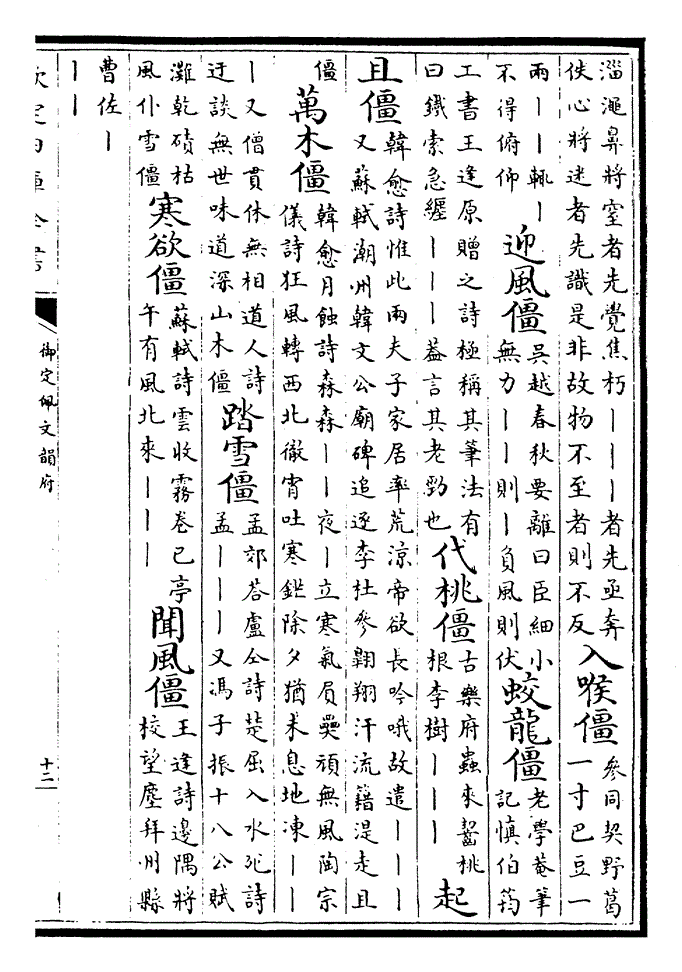 淄澠鼻將窒者先覺焦朽丨丨丨者先亟奔
佚心將迷者先識是非故物不至者則不反
入喉僵
參同契野葛
一寸巴豆一
兩丨丨輒丨
不得俯仰
迎風僵
吳越春秋要離曰臣細小
無力丨丨則丨負風則伏
蛟龍僵
老學菴筆
記慎伯筠
工書王逢原贈之詩極稱其筆法有
曰鐵索急纏丨丨丨葢言其老勁也
代桃僵
古樂府蟲來齧桃
根李樹丨丨丨
起
且僵
韓愈詩惟此兩夫子家居率荒涼帝欲長吟哦故遣丨丨丨
又蘇軾潮州韓文公廟碑追逐李杜參翺翔汗流籍湜走且
僵
萬木僵
韓愈月蝕詩森森丨丨夜丨立寒氣屓奰頑無風陶宗
儀詩狂風轉西北徹宵吐寒鋩除夕猶未息地凍丨丨
丨又僧貫休無相道人詩
迂談無世味道深山木僵
踏雪僵
孟郊荅盧仝詩楚屈入水死詩
孟丨丨丨又馮子振十八公賦
灘乾磧枯
風仆雪僵
寒欲僵
蘇軾詩雲收霧卷已亭
午有風北來丨丨丨
聞風僵
王逢詩邊隅將
校望塵拜州縣
曹佐丨
丨丨
欽定四庫全書
御定佩文韻府
十二